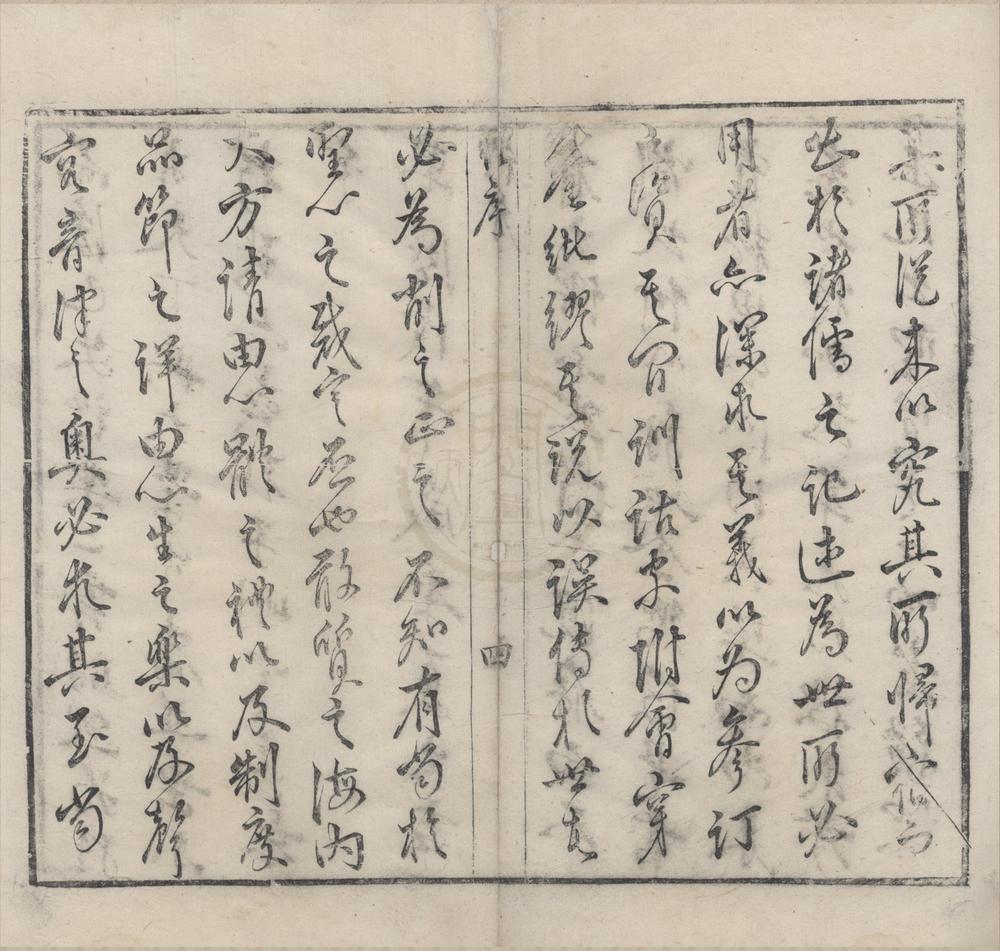 六所從來以究其所歸
出於諸儒之記述為世所必
用者亦深求其義以為參訂
之資其間訓詁家附會穿
鑿紕繆其說以誤傳於世者
序
四
必為削之正之不知有當於
聖心之裁定否也敢質之海内
大方請由心體之禮以及制度
品節之詳由心生之樂以及聲
容音律之奧必求其至當